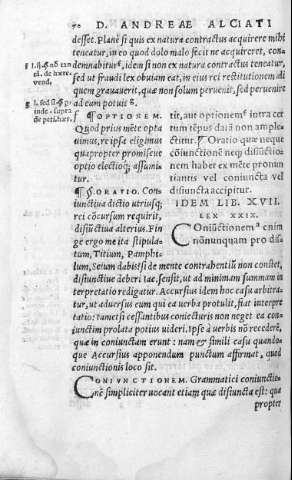 70 D. ANDREAE ALCIATI
desset. Planè si quis ex natura contractus acquirere mihi
teneatur, in eo quod dolo malo fecit ne acquireret, con-
demnabitur, idem si non ex natura contractus teneat,
sed ut fraudi lex obuiam eat, in eius rei restitutionem di
quem grauauerit, qua non solum peruenit, sed peruenire
ad eum potuisset.
f l. si
uend.
g l. sed
de peti. hær.
¶ OPTIONEM.
Quod prius mẽte opta
uimus, re ipsa eligimus
quapropter promiscuè
optio electioq; assumi-
tur.
¶ §. ORATIO. Con
iunctiua dictio utriusq;
rei cõcursum requirit,
disiũctiua alterius. Fin
ge ergo me ita stipula-
tum, Titium, Pamphi-
tit, aut optionem intra cer
tum tẽpus daiã non ample-
ctitur. ¶ Oratio quæ neque
coniunctionẽ neq; disiunctio-
nem habet ex mente pronun
tiantis vel coniuncta vel
disiuncta accipitur.
IDEM LIB. XVII.
LEX XXIX.
Coniũctionem enim
nõnunquam pro dis-
lum, Seium
de mente contrahentiũ non constet,
disiunctiue deberi
sensit, ut ad minimam summam in
terpretatio redigatur. Accursius idem hoc casu arbitra-
tur, ut aduersus eum qui ea uerba protulit, fiat interpre
tatio: tametsi cessantibus coniecturis non neget ea con-
iunctim prolata potius uideri. Ipse à uerbis nõ recederẽ,
quæ in coniunctam erunt: nam & simili casu quando-
que Accursius apponendum punctum affirmat, quod
coniunctionis loco sit.
CONIVNCTIONEM. Grammatici coniunctio-
nẽ simpliciter uocant etiam quæ disiuncta est: qua
propter